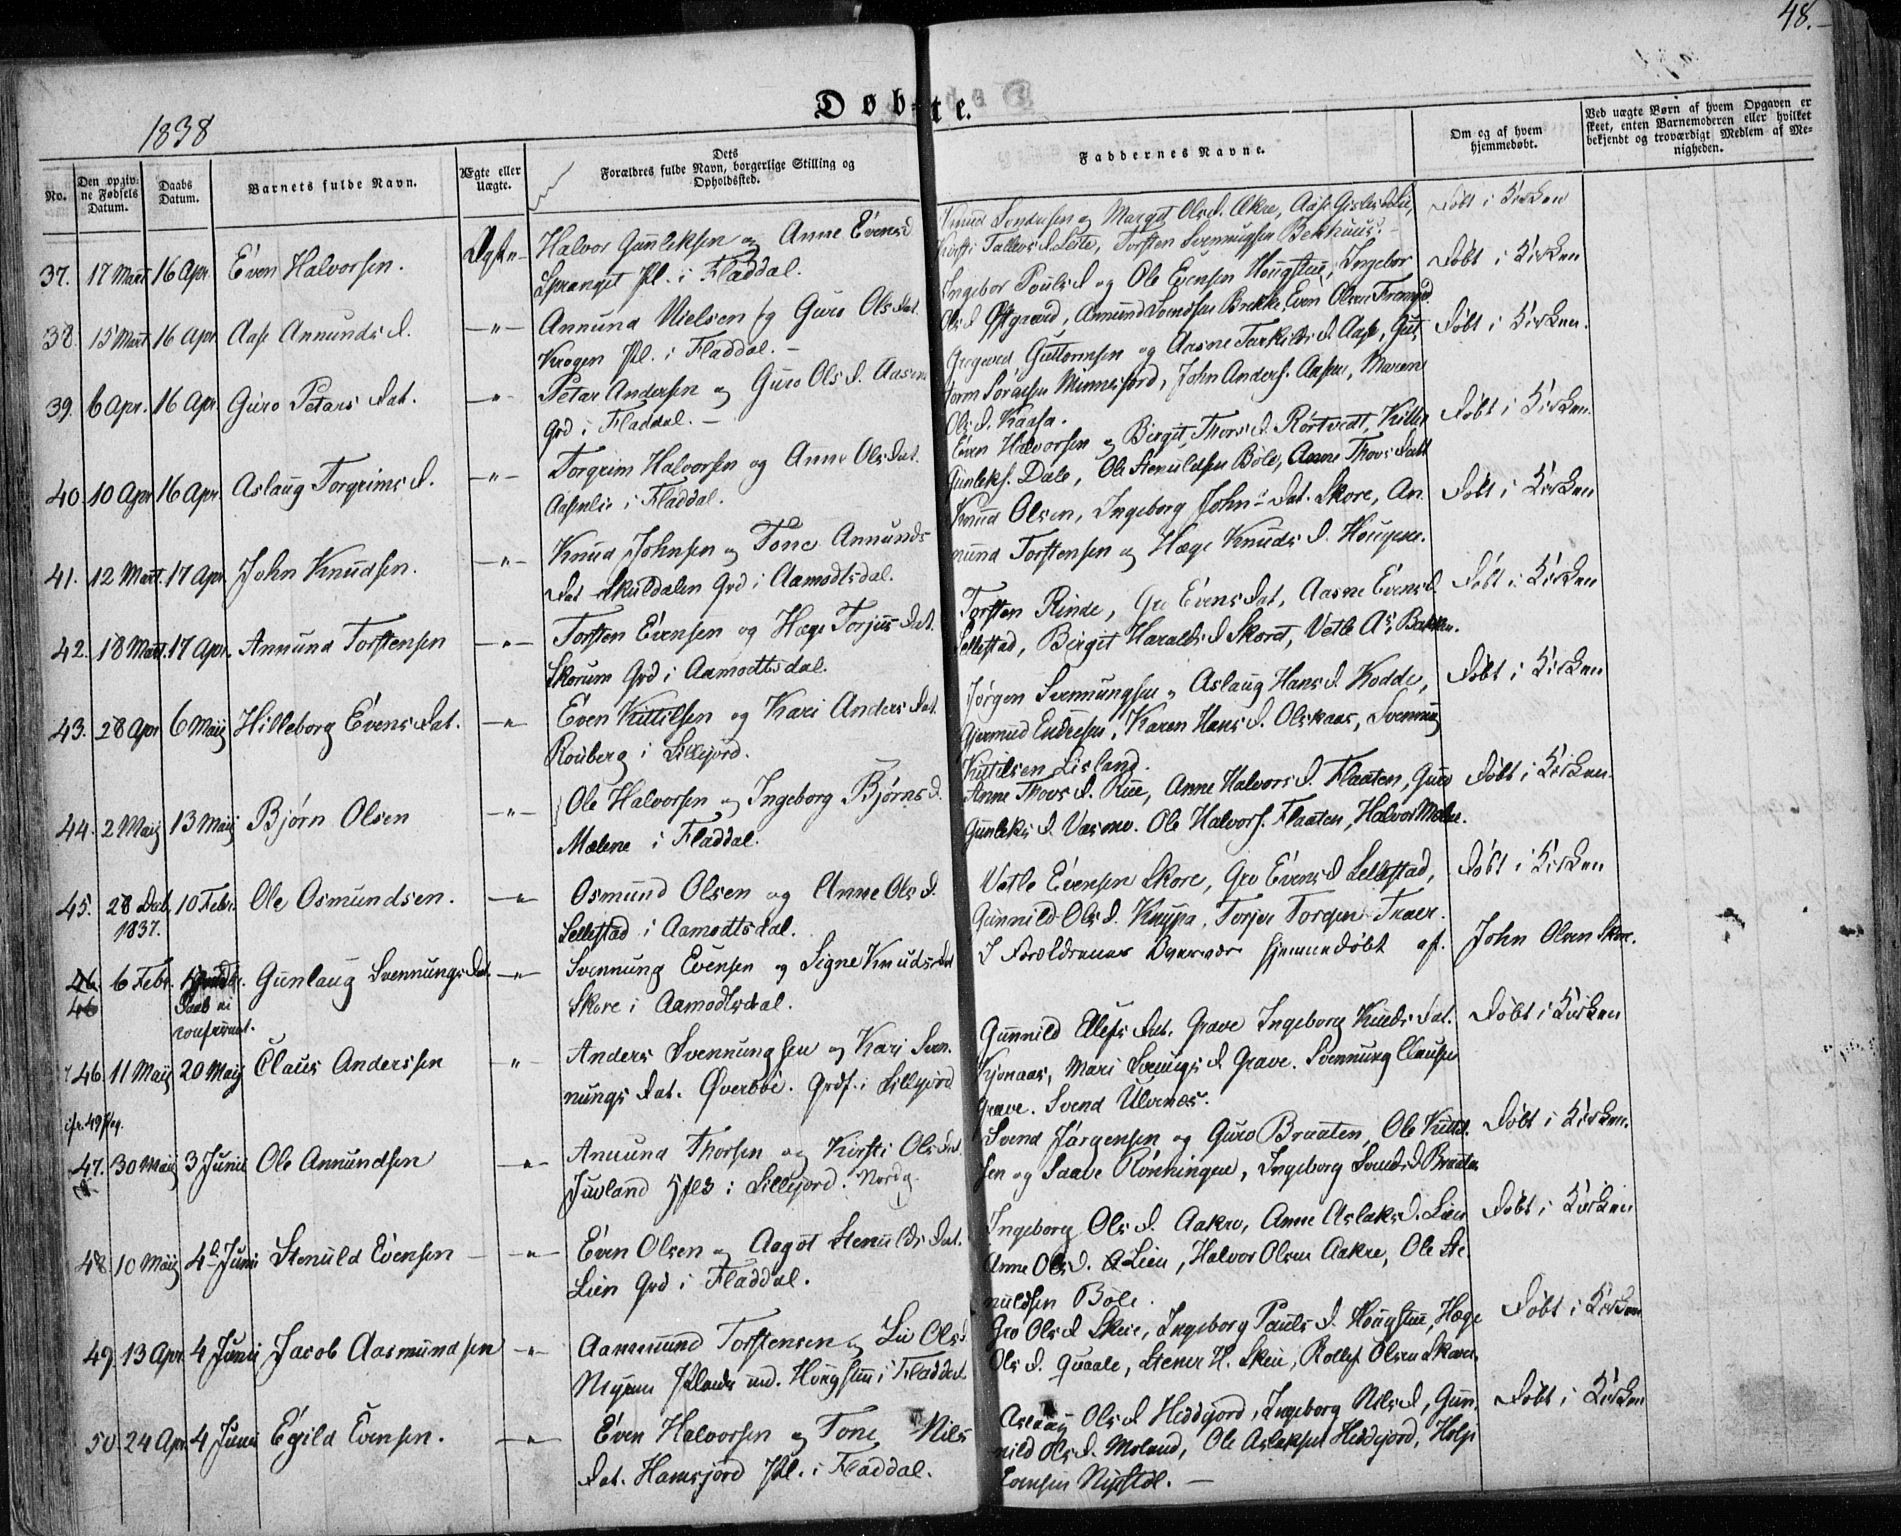 48.
Døbte.
1838
No.
Den opgivne Fødsels Datum.
Daabs Datum.
Barnets fulde Navn.
Ægte eller Uægte.
Dets Forældres fulde Navn, borgerlige Stilling og Opholdssted.
Faddernes Navne.
Om og af hvem hjemmedøbt.
Ved uægte Børn af hvem Opgaven er skeet, enten Barnemoderen eller hvilket bekjendt og troværdigt Medlem af Menigheden.
37. 17 Mart 16 Apr. Even Halvorsen. Ægte Halvor Gunleksen og Anne Evensd
Spranget Pl. i Fladdal.
og Margit Olsd. Økre, Aase
Kirsti Tallevsd. Leite, Torsten Svennugsen Bekhuus.
Døbt i Kirken
38. 15 Mart 16 Apr. Aase Annundsd. -"- Annund Nielsen og Guro Olsdat.
Krogen Pl. i Fladdal.
Ingebor Poulsd og Ole Evensen Hougstue, Ingebor
Olsd Østgaard, Annund Svendsen Brekke, Even Olsen
Døbt i Kirken
39. 6 Apr. 16 Apr. Guro Petersdat. -"- Petar Andersen og Guro Olsd. Aasen
Grd i Fladdal.
Guttormsen og Aasne Tarkildsd. Aase, Gut
torm Minnesjord, John Anders. Aasen, Maren
Olsd. Kaasa.
Døbt i Kirken.
40 10 Apr 16 Apr. Aslaug Torgrimsd. -"- Torgrim Halvorsen og Anne Olsdat.
Aaselie i Fladdal.
Even Halvorsen og Birgit Thorsd. Rørtvedt, Kittil
Gunleks. Dale, Ole Stenuldsen Bøle, Anne Thovsdatt
Døbt i Kirken.
41. 12 Mart. 17 Apr. John Knudsen. -"- Knud Johnsen og Tone Annunds
dat Skuldalen Grd i Aamodtsdal.
Knud Olsen, Ingeborg Johnsdat. Skore, An
nund Torstensen og Hæge Knudsd.
Døbt i Kirken
42. 18 Mart. 17 Apr. Annund Torstensen -"- Torsten Evensen og Hæge Torjusdat.
Skorum Grd i Aamodtsdal.
Torsten Rinde, Gro Evensdat, Aasne Evensd.
Sellestad, Birgit Haraldsd Skoret, Vetle As. Bakken.
Døbt i Kirken
43. 28 Apr 6 Maij Hilleborg Evensdat. -"- Even Kittilsen og Kari Andersdat.
Rouberg i Sillejord.
Jørgen Svennungsen og Aslaug Hansd. Kodde,
Gjermund Endresen, Karen Hansd. Olskaas, Svennug
Kittilsen Lisland.
Døbt i Kirken
44. 2 Maij 13 Maij Bjørn Olsen -"- Ole Halvorsen og Ingeborg Bjørnsd.
Mælene i Fladdal.
Anne Thovsd. Rue, Anne Halvorsd. Flaaten, Guro
Gunleksd. Vasmo. Ole Halvors. Flaaten, Halvor Mælen.
Døbt i Kirken.
45. 28 Dec. 1837. 10 Febr. Ole Osmundsen. -"- Osmund Olsen og Anne Olsd.
Sellestad i Aamodtsdal.
Vetle Evensen Skore, Gro Evensd Sellestad,
Gunnild Olsd. Knypa, Torjer Torgen Traer.
Døbt i Kirken
46. 46 6 Febr. Daab ei confirmert. Gunlaug Svennungsdat -"- Svennung Evensen og Signe Knudsdat
Skore i Aamodtsdal.
I Forældrenes Overvær hjemmedøbt af. John Olsen Skore.
46. 11 Maij 20 Maij Claus Anderssen " Anders Svennungsen og Kari Sven
nungsdat. Øverbøe. Grdf. i Sillejord
Gunnild Ellefsdat. Grave Ingeborg Knudsdat.
Kjonaas, Mari Svennugsd Grave. Svennung Clausen
Grave. Svend Ulvenes.
Døbt i Kirken
47. 30 Maij 3 Junii Ole Annundsen -"- Annund Thorsen og Kirsti Olsdat
Juvland i Sillejord.
Svend Jørgensen og Guro Braaten, Ole Kittil
sen og Saave Rønningen, Ingeborg Svendsd Braaten
Døbt i Kirken.
48 10 Maij 4de Juni Stenuld Evensen -"- Even Olsen og Aagot Stenuldsdat.
Lien Grd i Fladdal.
Ingeborg Olsd. Aakre, Anne Aslaksd. Lien
Anne Olsd. Lien, Halvor Olsen Aakre, Ole Ste
nuldsen Bøle.
Døbt i Kirken
49. 13 Apr. 4 Junii Jacob Aasmundsen -"- Aanmund Torstensen og Liv Olsd.
Myren Plads und. Hougstuu i Fladdal.
Gro Olsd Skeie, Ingeborg Paulsd. Hougstuu, Hæge
Olsd. Qvaale, Stener H. Skeie, Rollef Olsen
Døbt i Kirken
50. 24 Apr. 4 Junii Egild Evensen. -"- Even Halvorsen og Tone Nils
dat. Hamsjord Pl. i Fladdal.
Olsd Heddejord, Ingeborg Nilsd, Gun
nild Olsd. Moland, Ole Aslaksen Heddejord, Helje
Evensen Nipstøl.
Døbt i Kirken